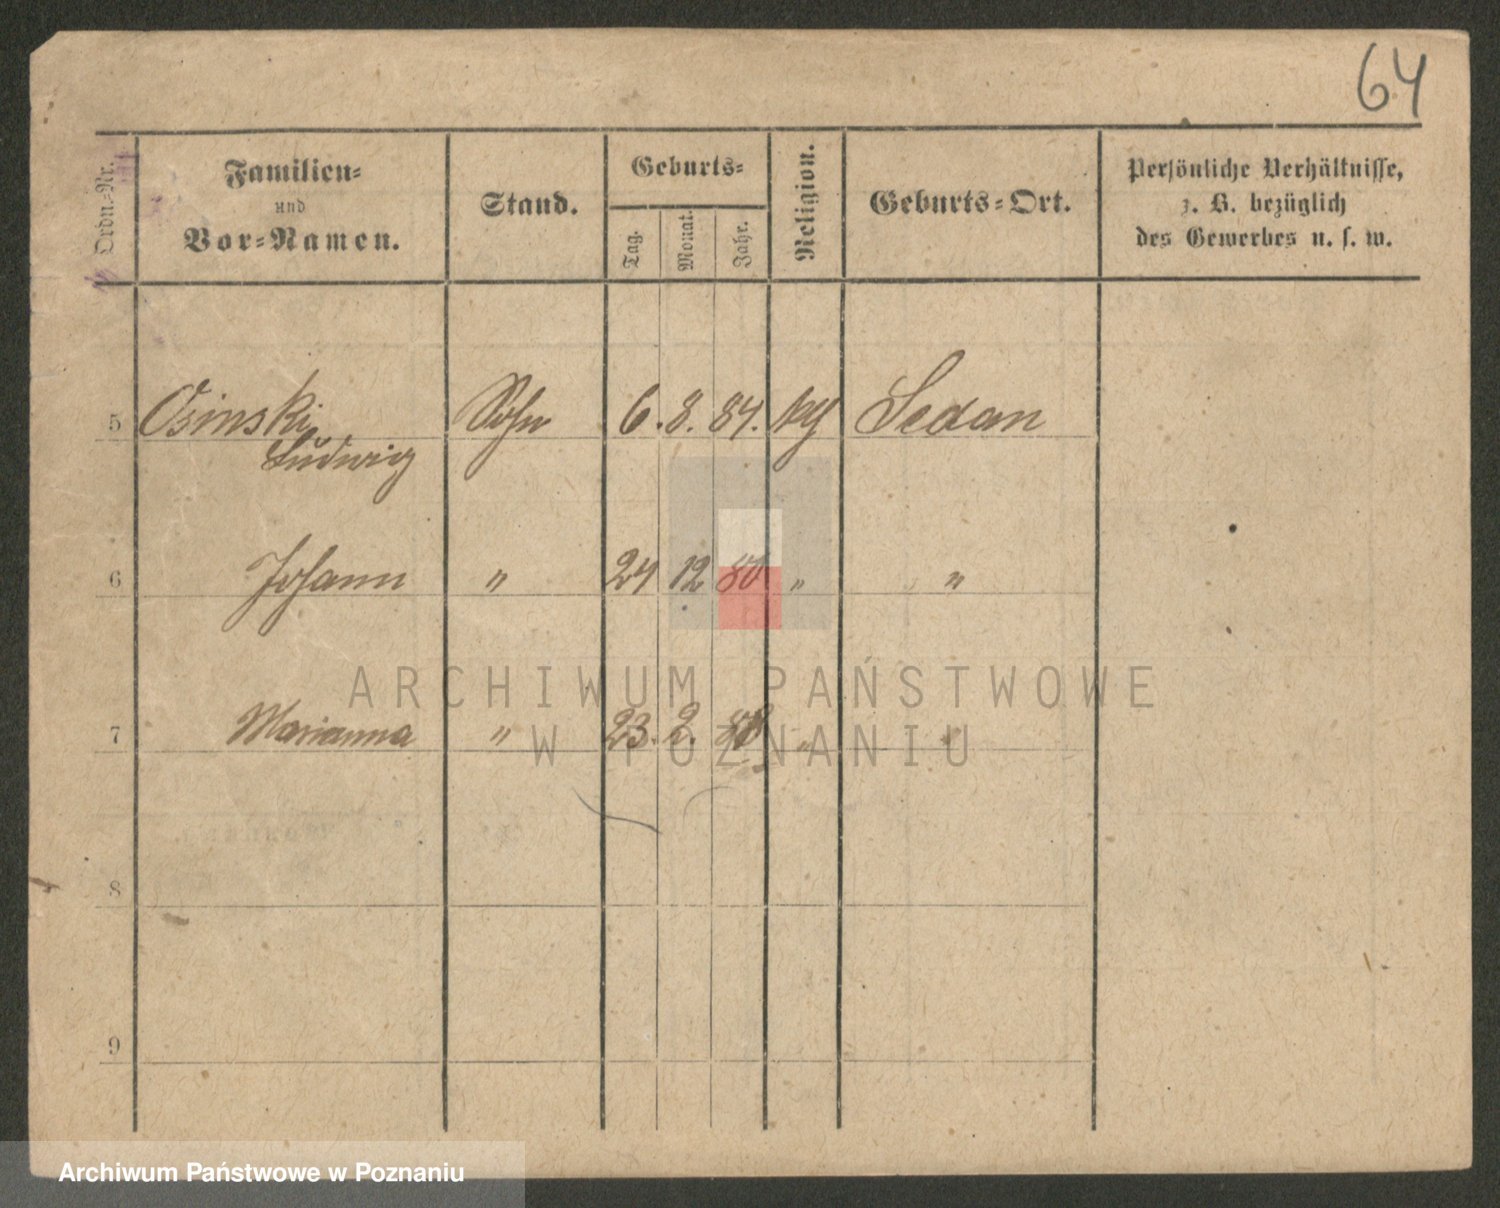 64
Ordn.-Nr.
Familien-
und
Vor-Namen.
Stand.
Geburts-
Tag.
Monat.
Jahr.
Religion.
Geburts-Ort.
Persönliche Verhältnisse,
z. B. bezüglich
des Gewerbes u. s. w.
5 Osinski Sohn 6. 8. 84. Sedan
Ludwig
6 Johann " 24 12 " "
7 Marianna " 23. 2. " "
8
9
ARCHIWUM PAŃSTWOWE
W POZNANIU
Archiwum Państwowe w Poznaniu